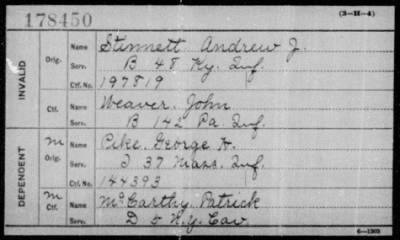 178450
(3-H-4)
INVALID
Orig.
Name Stinnett Andrew J.
Serv. B 48 Ky. Inf.
Ctf. No. 197819
Ctf.
Name Weaver, John
Serv. B 142 Pa. Inf.
DEPENDENT
M
Orig.
Name Pike, George H.
Serv. I 37 Mass. Inf.
Ctf. No. 144393
M
Ctf.
Name McCarthy, Patrick
Serv. D 5 N.Y. Cav.
6-1303